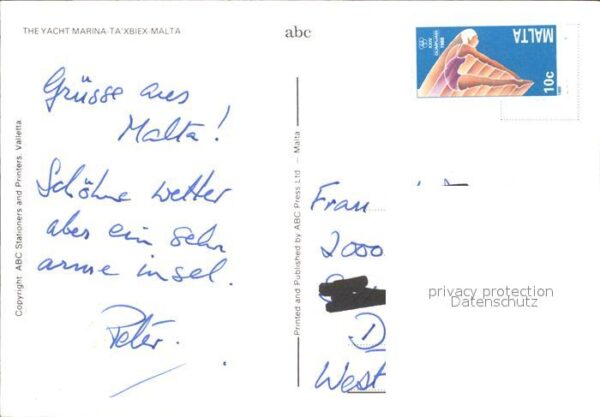 THE YACHT MARINA-TA'XBIEX-MALTA
abc
MALTA
10c
XXIV OLIMPIJADI 1988
Grüsse aus
Malta!
Schöhne wetter
aber ein sehr
arme insel.
Peter.
Copyright ABC Stationers and Printers, Valletta.
Printed and Published by ABC Press Ltd — Malta
Frau
2000
D
West
privacy protection
Datenschutz